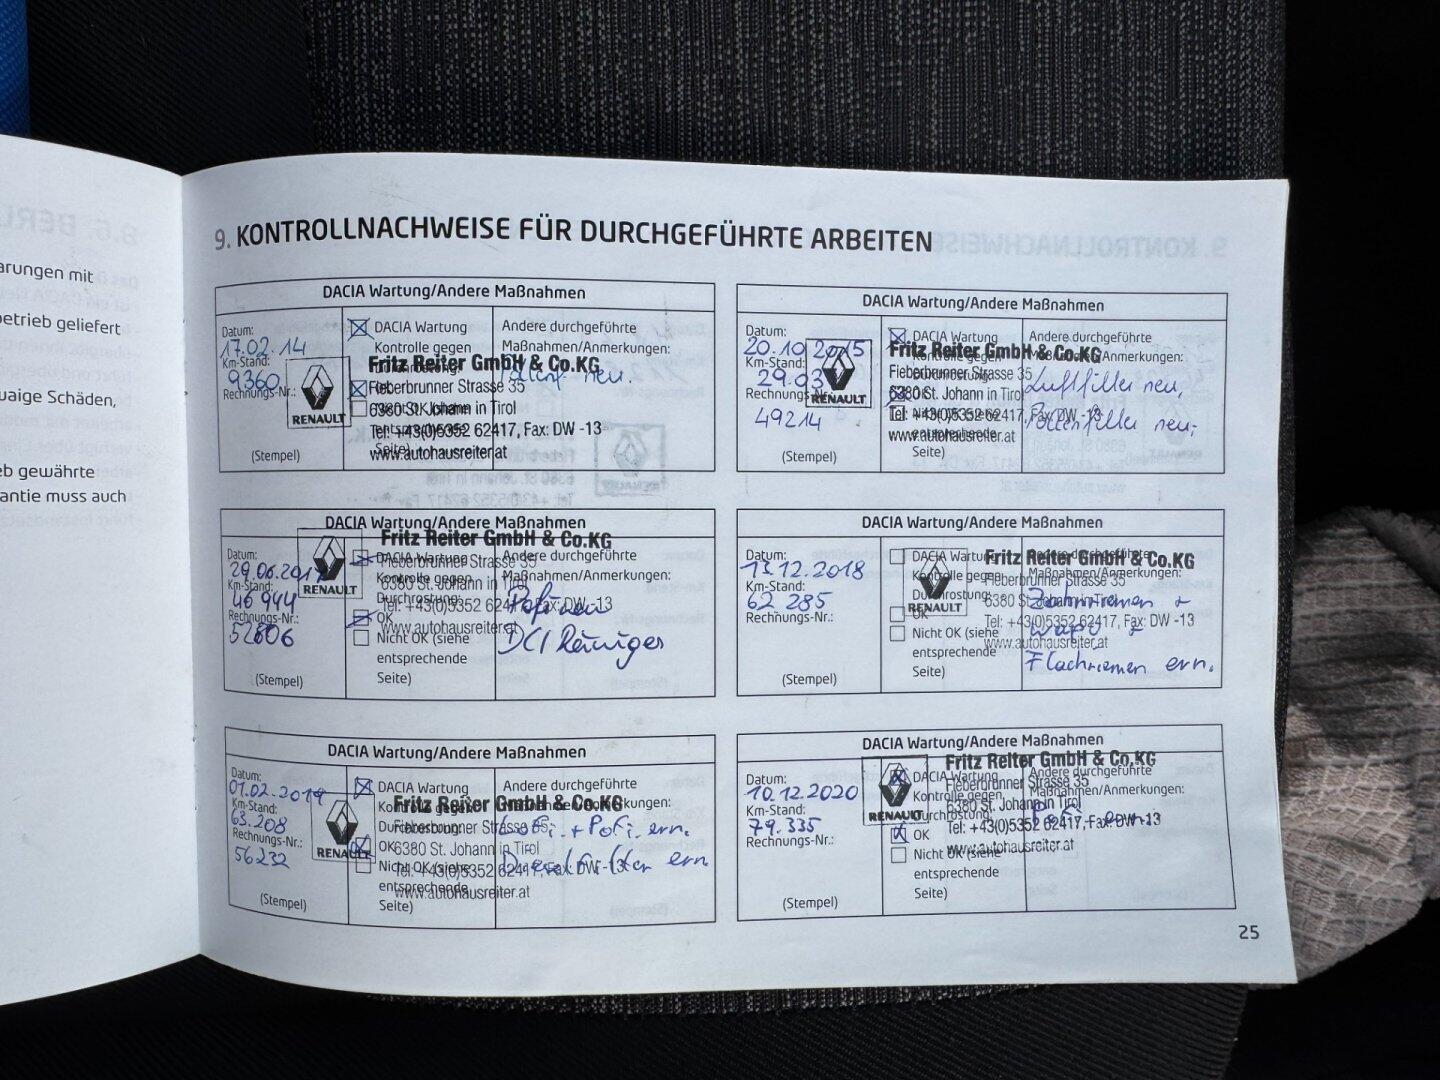 arungen mit
etrieb geliefert
uaige Schäden,
eb gewährte
antie muss auch
9. KONTROLLNACHWEISE FÜR DURCHGEFÜHRTE ARBEITEN
DACIA Wartung/Andere Maßnahmen
Datum:
17.02.14
Km-Stand:
9360
Rechnungs-Nr.:
(Stempel)
DACIA Wartung
Kontrolle gegen
Seite)
Andere durchgeführte
Maßnahmen/Anmerkungen:
neu.
RENAULT
Fritz Reiter GmbH & Co.KG
Fieberbrunner Strasse 35
6380 St. Johann in Tirol
Tel: +43(0)5352 62417, Fax: DW -13
www.autohausreiter.at
DACIA Wartung/Andere Maßnahmen
Datum:
20.10.2015
Km-Stand:
Rechnungs
49214
(Stempel)
DACIA Wartung
Kontrolle gegen
entsprechende
Seite)
Andere durchgeführte
Maßnahmen/Anmerkungen:
Luftfilter neu,
Pollenfilter neu,
RENAULT
Fritz Reiter GmbH & Co.KG
Fieberbrunner Strasse 35
6380 St. Johann in Tirol
Tel: +43(0)5352 62417, Fax: DW -13
www.autohausreiter.at
DACIA Wartung/Andere Maßnahmen
Datum:
29.06.2017
Km-Stand:
46 944
Rechnungs-Nr.:
52606
(Stempel)
DACIA Wartung
Kontrolle gegen
Durchrostung:
OK
Nicht OK (siehe
entsprechende
Seite)
Andere durchgeführte
Maßnahmen/Anmerkungen:
Pofi neu
DCI Reiniger
RENAULT
Fritz Reiter GmbH & Co.KG
Fieberbrunner Strasse 35
6380 St. Johann in Tirol
Tel: +43(0)5352 62417, Fax: DW -13
www.autohausreiter.at
DACIA Wartung/Andere Maßnahmen
Datum:
13.12.2018
Km-Stand:
62 285
Rechnungs-Nr.:
(Stempel)
DACIA Wartung
Kontrolle gegen
Durchrostung:
OK
Nicht OK (siehe
entsprechende
Seite)
Andere durchgeführte
Maßnahmen/Anmerkungen:
Zahnriemen +
Wapu +
Flachriemen ern.
RENAULT
Fritz Reiter GmbH & Co.KG
Fieberbrunner Strasse 35
6380 St. Johann in Tirol
Tel: +43(0)5352 62417, Fax: DW -13
www.autohausreiter.at
DACIA Wartung/Andere Maßnahmen
Datum:
01.02.2019
Km-Stand:
63.208
Rechnungs-Nr.:
56232
(Stempel)
DACIA Wartung
Kontrolle gegen
Durchrostung:
OK
Nicht OK (siehe
entsprechende
Seite)
Andere durchgeführte
Maßnahmen/Anmerkungen:
Lufi + Pofi ern.
Dieselfilter ern
RENAULT
Fritz Reiter GmbH & Co.KG
Fieberbrunner Strasse 35
6380 St. Johann in Tirol
Tel: +43(0)5352 62417, Fax: DW -13
www.autohausreiter.at
DACIA Wartung/Andere Maßnahmen
Datum:
10.12.2020
Km-Stand:
79.335
Rechnungs-Nr.:
(Stempel)
DACIA Wartung
Kontrolle gegen
Durchrostung:
OK
Nicht OK (siehe
entsprechende
Seite)
Andere durchgeführte
Maßnahmen/Anmerkungen:
Pofi ern.
RENAULT
Fritz Reiter GmbH & Co.KG
Fieberbrunner Strasse 35
6380 St. Johann in Tirol
Tel: +43(0)5352 62417, Fax: DW -13
www.autohausreiter.at
25